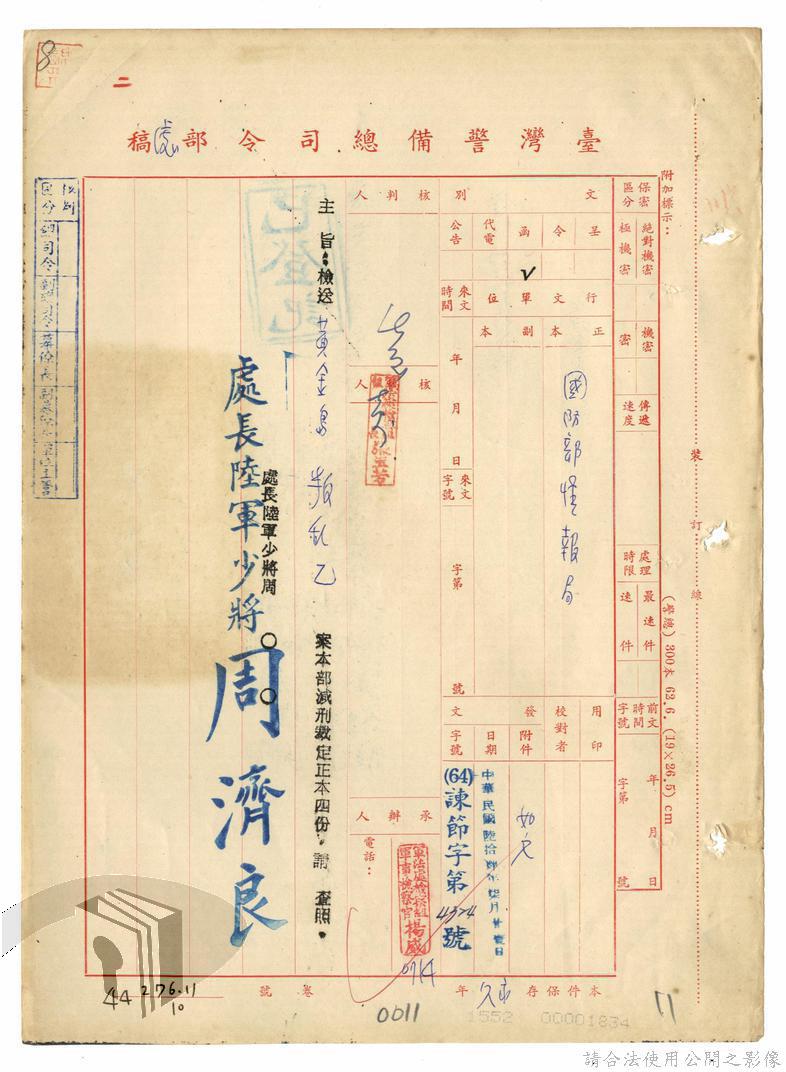 8
二
臺灣警備總司令部處稿
附加標示：
保密區分
絕對機密
極機密
機密
密
傳遞速度
處理時限
最速件
速件
前文時間字號
年 月 日
字第 號
文別
呈
令
函
代電
公告
ˇ
行文單位
正本
副本
國防部情報局
來文時間
年 月 日
來文字號
字第 號
用印
校對者
發文
附件
日期
字號
如文
(64)諫節字第4374號
核判人
核人
承辦人
電話：
軍法處檢察組軍事檢察官楊威
0714
已登記
主旨：檢送黃金島叛亂乙案本部減刑裁定正本四份，請 查照。
處長陸軍少將周○○
處長陸軍少將周濟良
裝訂線
(警總) 300本 62.6. (19×26.5) cm
本件保存 年
卷號
44 276.11
10
0011
1552 00001834
11
請合法使用公開之影像